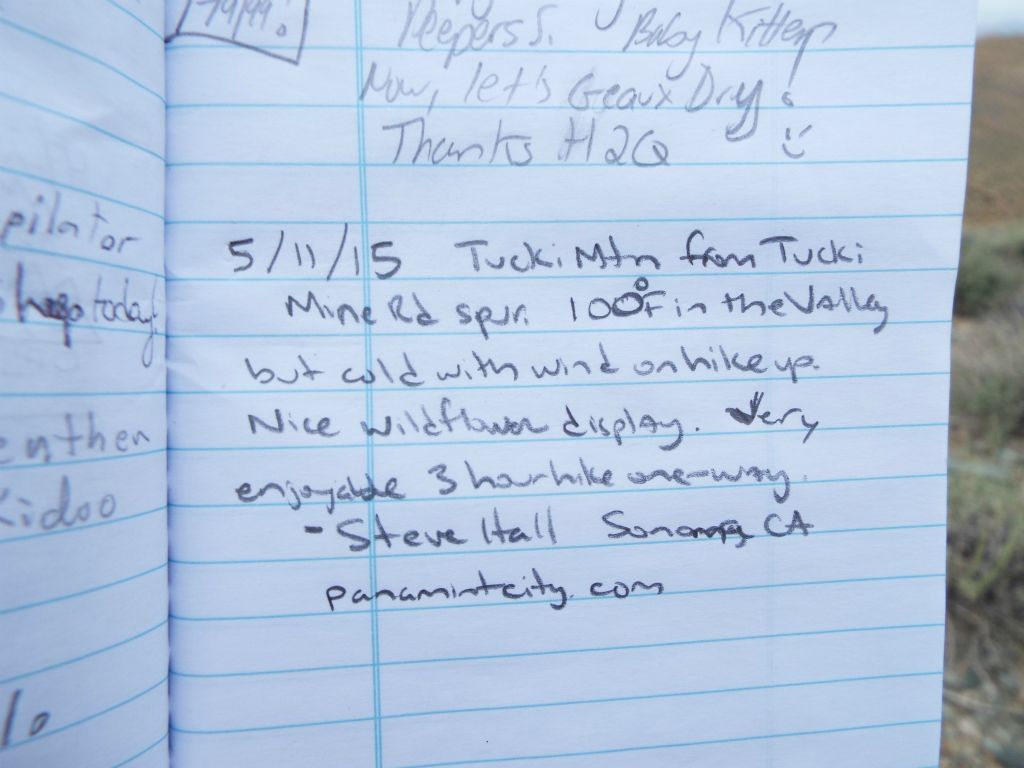 79/99!
Peepers S. Baby Kitten
Now, let's Geaux Dry!
Thanks H2O :)
pilator
today!
enthen
Kidoo
5/11/15 Tucki Mtn from Tucki
Mine Rd spur. 100°F in the Valley
but cold with wind on hike up.
Nice wildflower display. Very
enjoyable 3 hour hike one-way.
- Steve Hall Sonoma, CA
panamintcity.com